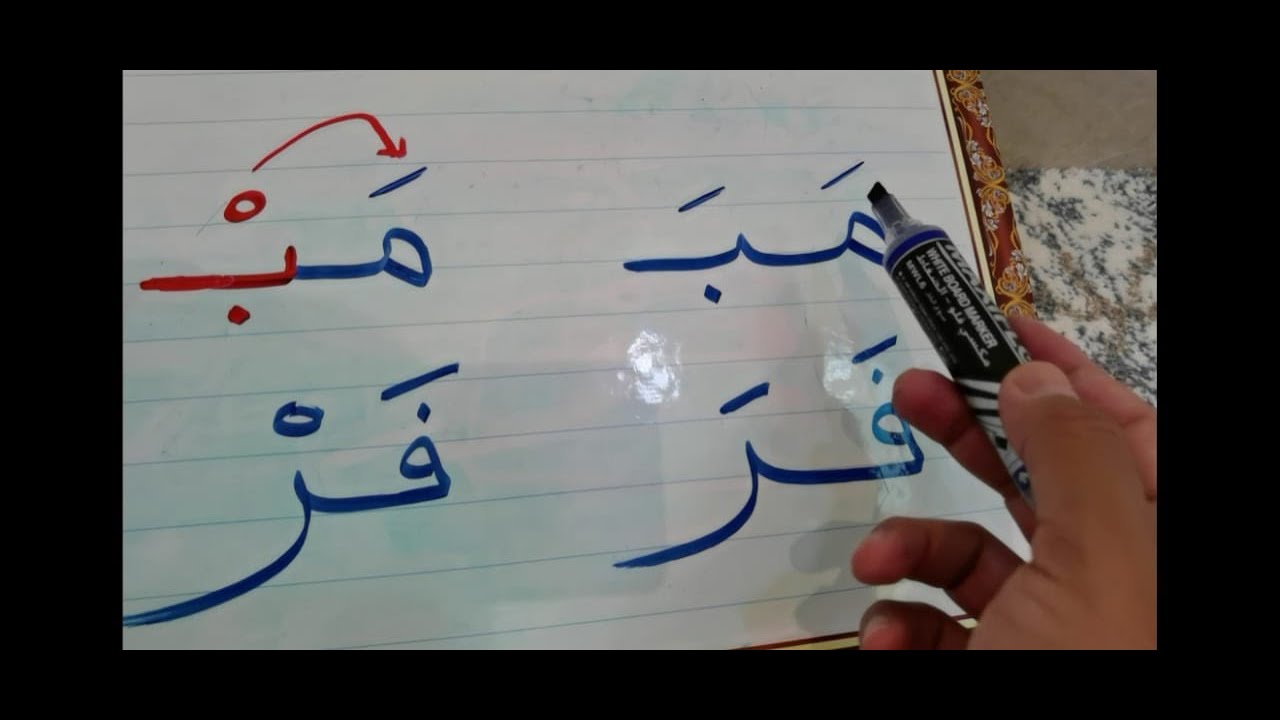 مَبَ مَبْ
فَرَ فَرْ
WHITE BOARD MARKER